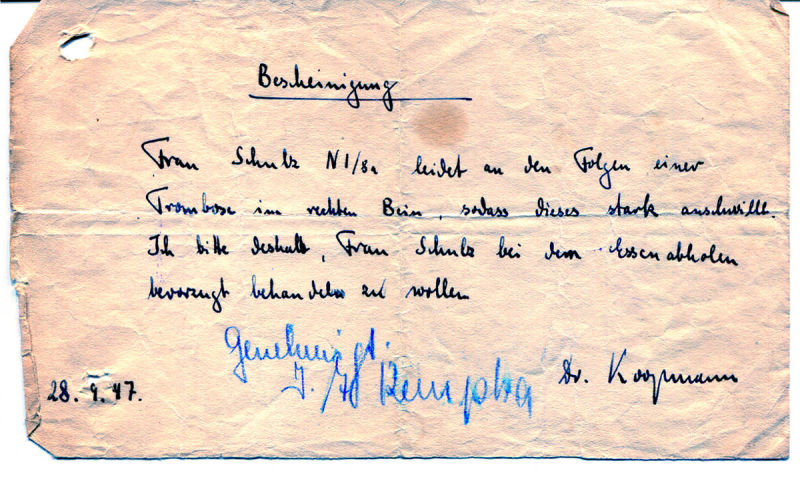 Bescheinigung
Frau Schulz N I/8a leidet an den Folgen einer
Trombose im rechten Bein, sodass dieses stark anschwillt.
Ich bitte deshalb, Frau Schulz bei dem Essenabholen
bevorzugt behandeln zu wollen
Genehmigt.
Dr. Koopmann
28. 9. 47.